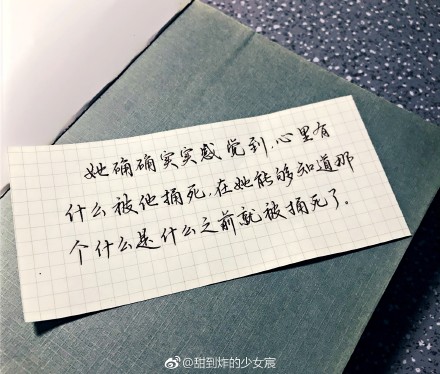 她确确实实感觉到,心里有
什么被他捅死,在她能够知道那
个什么是什么之前就被捅死了。
@甜到炸的少女宸